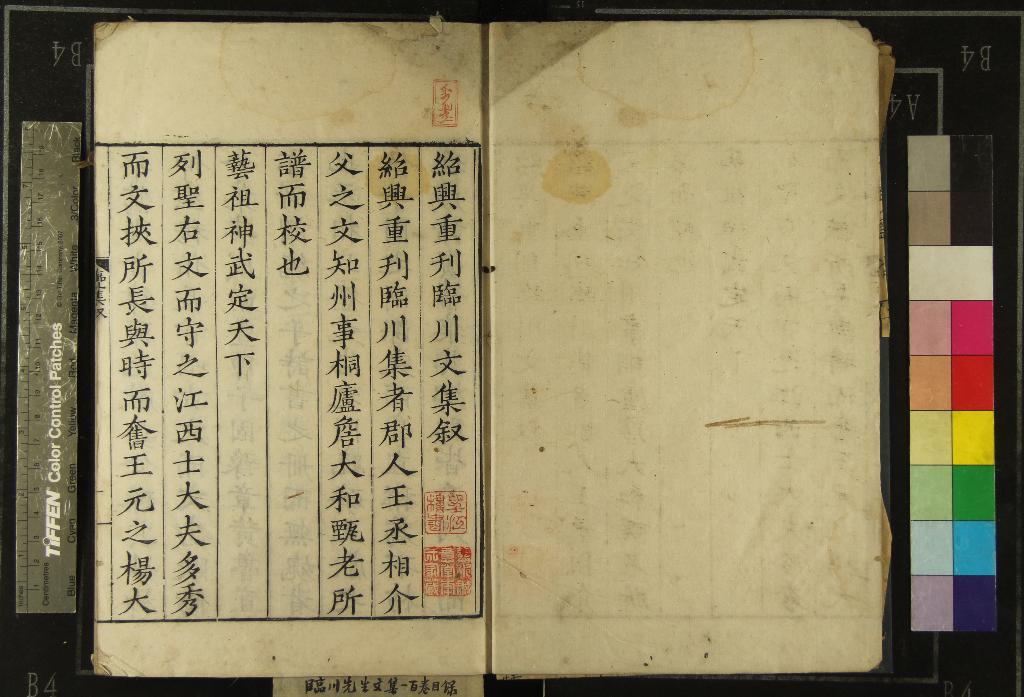 紹興重刊臨川文集叙
紹興重刊臨川集者郡人王丞相介
父之文知州事桐廬詹大和甄老所
譜而校也
藝祖神武定天下
列聖右文而守之江西士大夫多秀
而文挾所長與時而奮王元之楊大
臨川先生文集一百卷目录
TIFFEN Color Control Patches
Centimetres
Inches
Blue
Cyan
Green
Yellow
Red
Magenta
White
3/Color
Black
B4
B4
A4
B4
B4